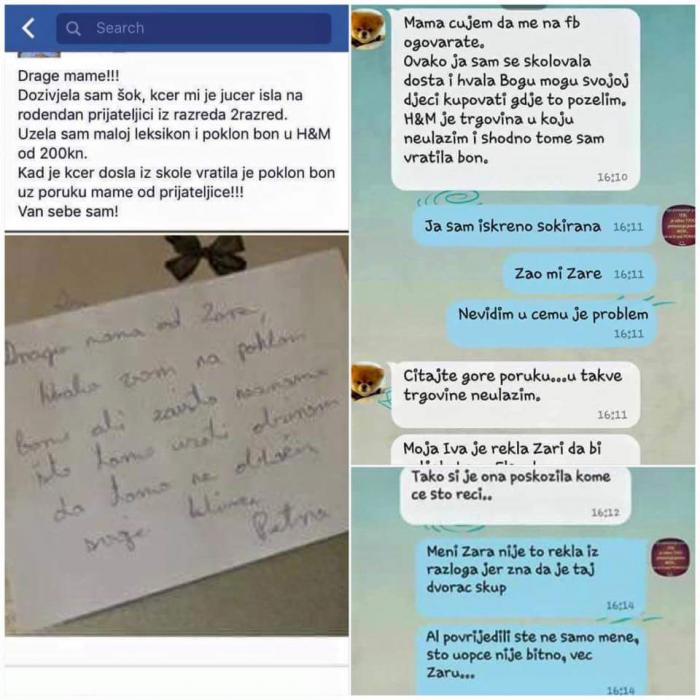 Search
Drage mame!!!
Dozivjela sam šok, kcer mi je jucer isla na
rodendan prijateljici iz razreda 2razred.
Uzela sam maloj leksikon i poklon bon u H&M
od 200kn.
Kad je kcer dosla iz skole vratila je poklon bon
uz poruku mame od prijateljice!!!
Van sebe sam!
Draga mama od Zare,
na poklon
bonu ali zaista
isto tamo
da tamo ne
svoje
Petra
Mama cujem da me na fb
ogovarate.
Ovako ja sam se skolovala
dosta i hvala Bogu mogu svojoj
djeci kupovati gdje to pozelim.
H&M je trgovina u koju
neulazim i shodno tome sam
vratila bon.
16:10
Ja sam iskreno sokirana 16:11
Zao mi Zare 16:11
Nevidim u cemu je problem
16:11
Citajte gore poruku...u takve
trgovine neulazim.
16:11
Moja Iva je rekla Zari da bi
Tako si je ona poskozila kome
ce sto reci..
16:12
Meni Zara nije to rekla iz
razloga jer zna da je taj
dvorac skup
16:14
Al povrijedili ste ne samo mene,
sto uopce nije bitno, vec
Zaru...
16:14